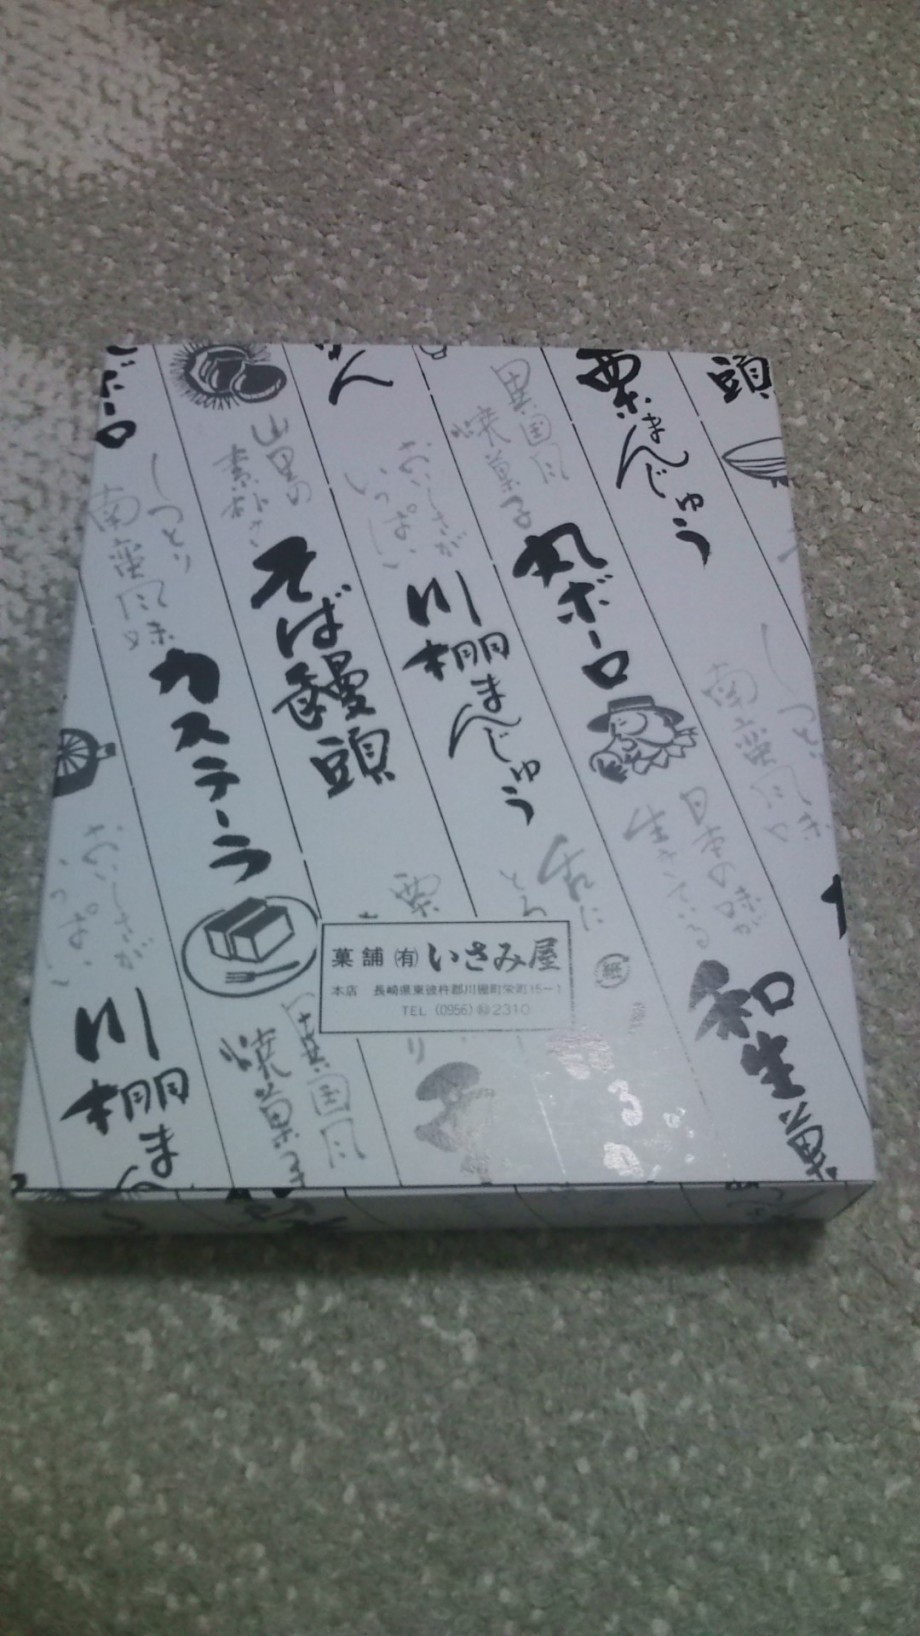 頭
栗まんじゅう
異国風
焼菓子
丸ボーロ
日本の味が
生きている
和生菓
おいしさが
いっぱい
川棚まんじゅう
舌に
山里の
素朴さ
そば饅頭
栗
しっとり
南蛮風味
カステーラ
異国風
焼菓子
ボーロ
おいしさが
いっぱい
川棚ま
しっとり
南蛮風味
紙
菓舗 ㈲ いさみ屋
本店 長崎県東彼杵郡川棚町栄町15−1
TEL (0956) 82 2310